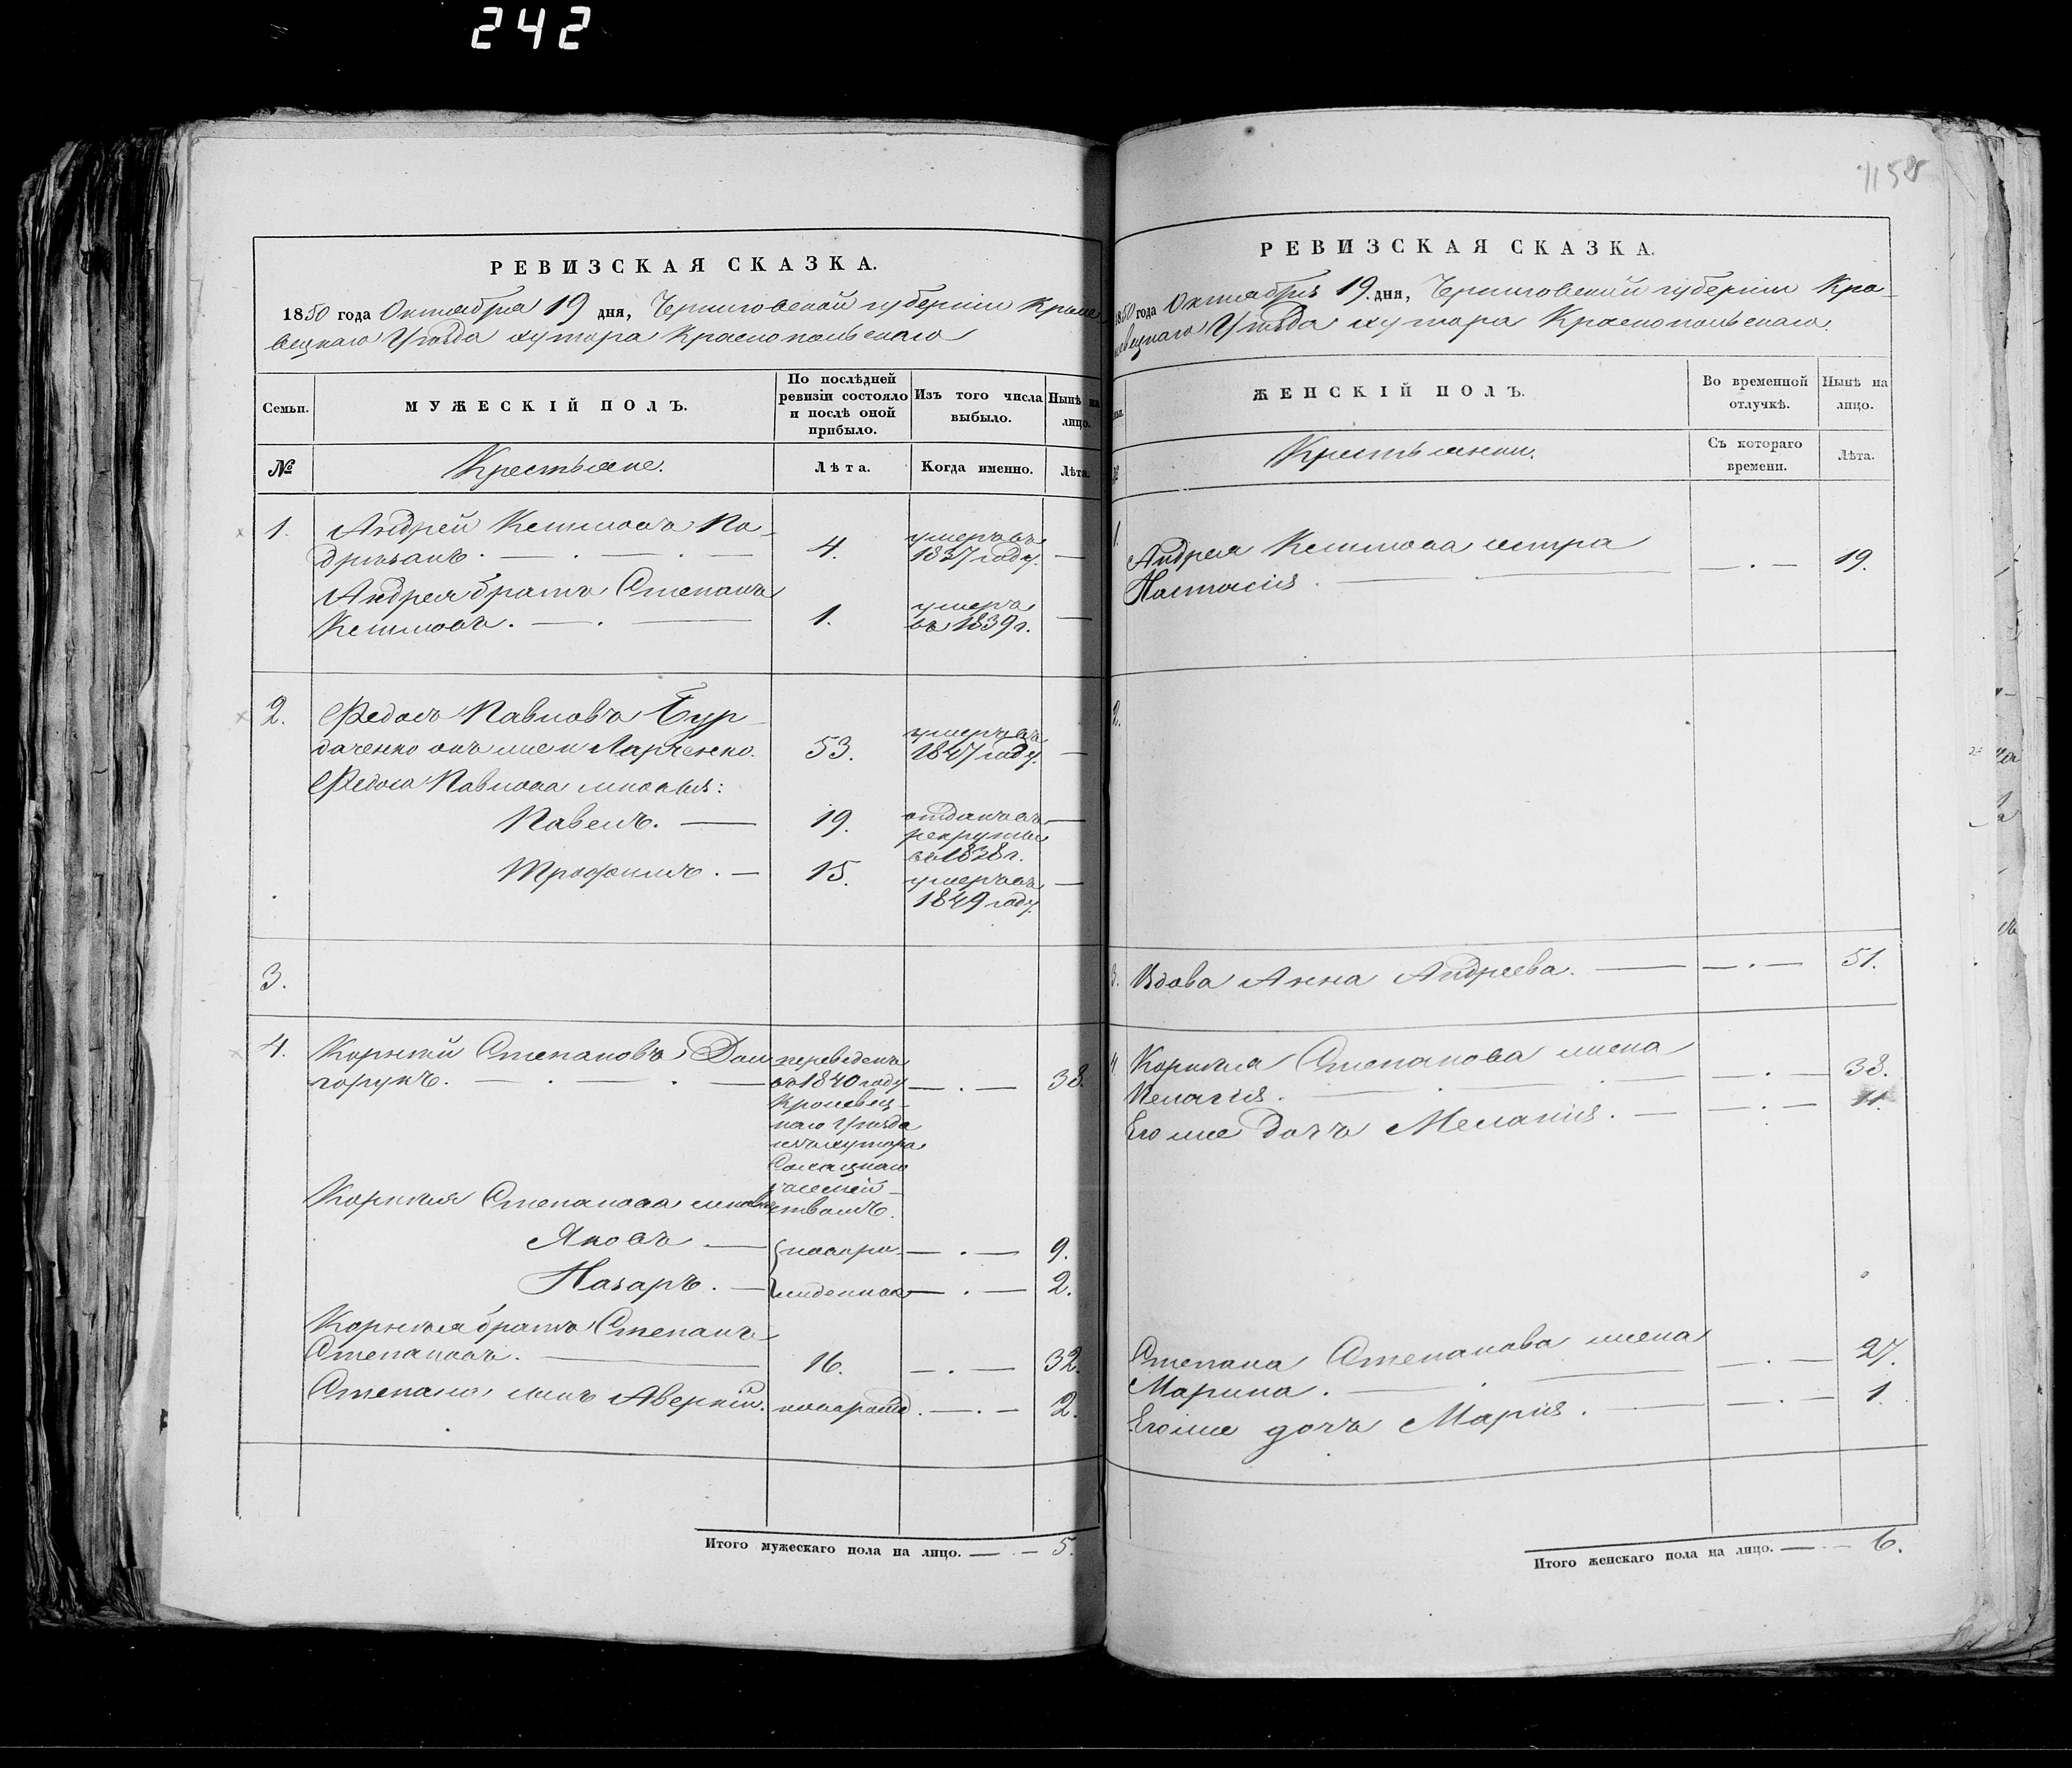 242
1158
РЕВИЗСКАЯ СКАЗКА.
1850 года Октября 19 дня, Черниговской губернии Кроле
вецкаго Уѣзда хутора Краснопольскаго
Семьи.
МУЖЕСКІЙ ПОЛЪ.
По послѣдней
ревизіи состояло
и послѣ оной
прибыло.
Изъ того числа
выбыло.
Нынѣ на
лицо.
№
Крестьяне.
Лѣта.
Когда именно.
Лѣта.
1.
Андрей
4.
умеръ въ
1837 году.
—
Андрея братъ Степанъ
1.
умеръ
въ 1839 г.
—
2.
Федосъ Павловъ Бур
даченко онъ же и Ларченко.
53.
умеръ въ
1847 году.
—
Федоса Павлова сыновья:
Павелъ. —
19.
отданъ въ
рекруты
въ 1838 г.
—
Трофимъ. —
15.
умеръ въ
1849 году.
—
3.
4.
Корнѣй Степановъ Дол
горукъ.
переведенъ
въ 1840 году
Кролевец-
каго Уѣзда
изъ хутора
съ семей-
ствомъ.
— . —
38.
Корнѣя Степанова сыновья
Яковъ —
новоро-
— . —
9.
Назаръ. —
жденные
— . —
2.
Корнѣя братъ Степанъ
Степановъ.
16.
— . —
32.
Степана сынъ Аверкій.
новорожд.
— . —
2.
Итого мужескаго пола на лицо. — . — 5.
РЕВИЗСКАЯ СКАЗКА.
1850 года Октября 19. дня, Черниговской губерніи Кро-
левецкаго Уѣзда хутора Краснопольскаго.
ЖЕНСКІЙ ПОЛЪ.
Во временной
отлучкѣ.
Нынѣ на
лицо.
Крестьянки.
Съ котораго
времени.
Лѣта.
1.
Андрея сестра
Настасія.
— . —
19.
2.
3.
Вдова Анна Андреева.
— . —
51.
4.
Корнѣя Степанова жена
Пелагія.
— . —
38.
Его же дочь Меланія.
— . —
11.
Степана Степанова жена
Марина.
— . —
27.
Его же дочь Марія.
— . —
1.
Итого женскаго пола на лицо. — . — 6.